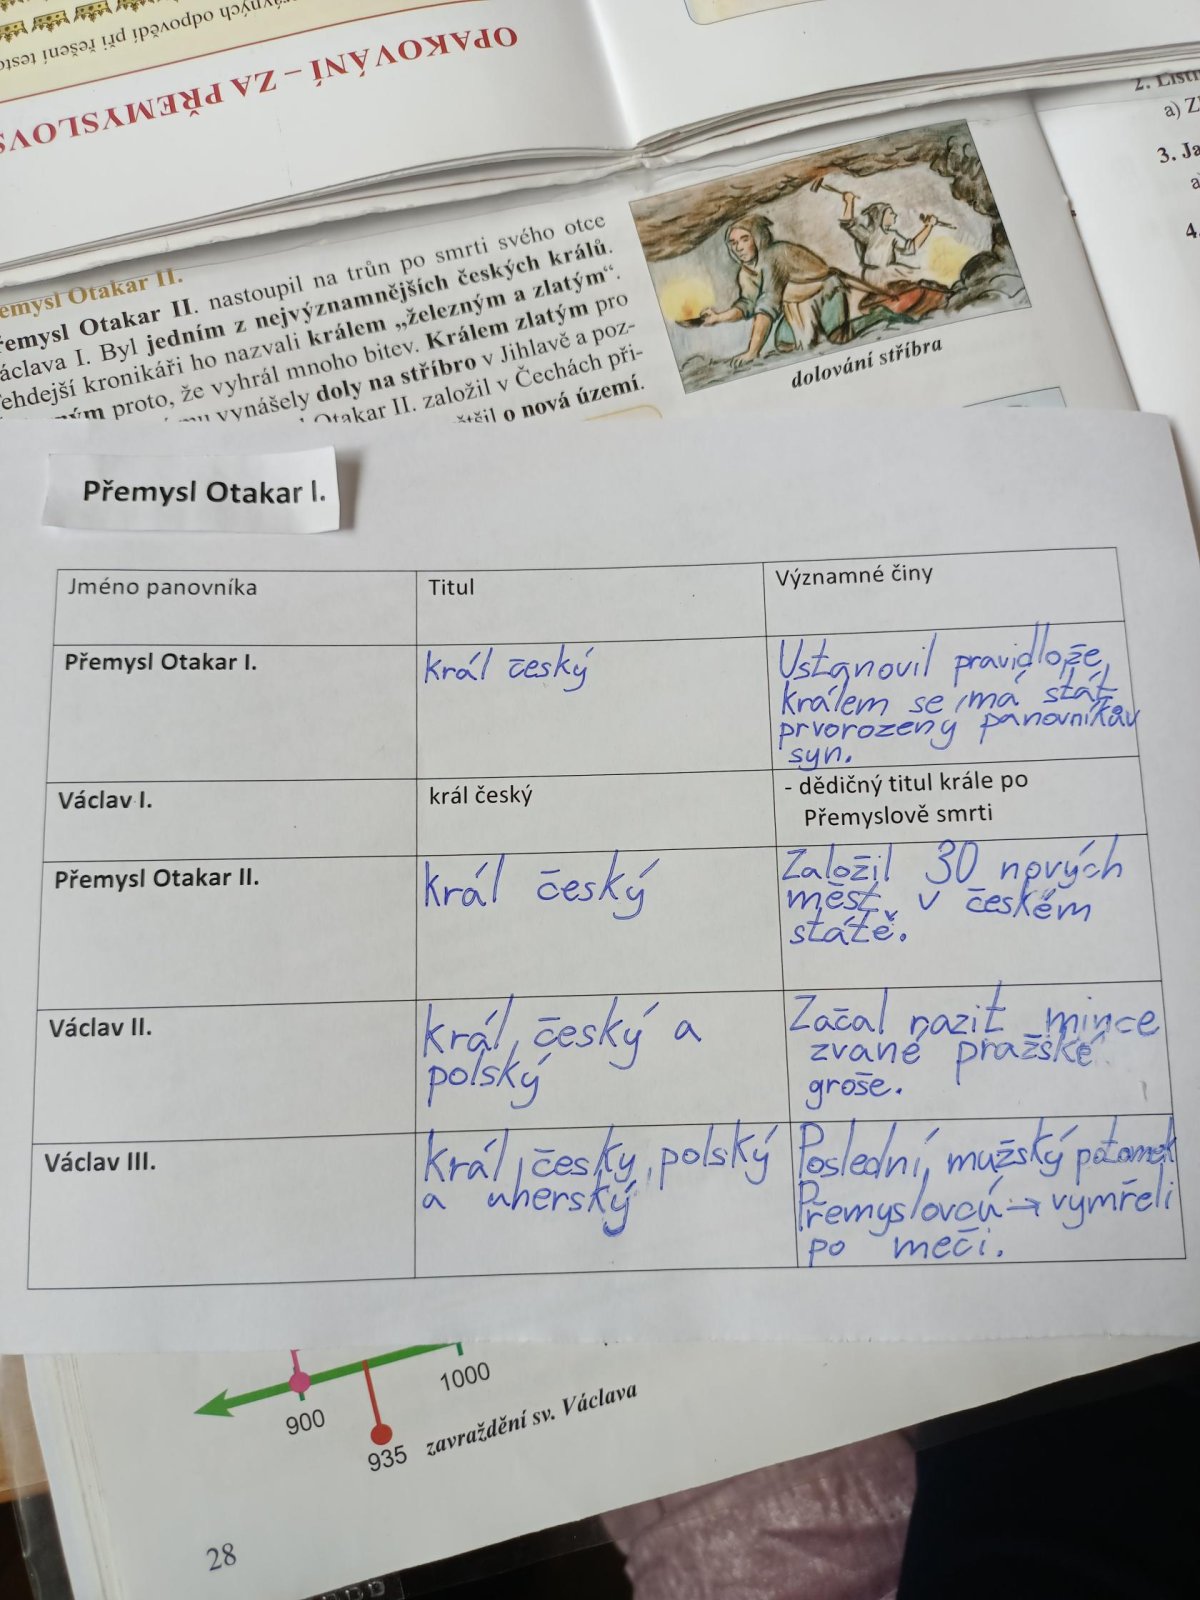 správných odpovědí při řešení testo
OPAKOVÁNÍ – ZA PŘEMYSLOVS
2. Listi
a) Zl
3. Ja
a)
4.
emysl Otakar II.
řemysl Otakar II. nastoupil na trůn po smrti svého otce
áclava I. Byl jedním z nejvýznamnějších českých králů.
ehdejší kronikáři ho nazvali králem „železným a zlatým“.
ným proto, že vyhrál mnoho bitev. Králem zlatým pro
mu vynášely doly na stříbro v Jihlavě a poz-
Otakar II. založil v Čechách při-
o nová území.
dolování stříbra
Přemysl Otakar I.
Jméno panovníka
Titul
Významné činy
Přemysl Otakar I.
král český
Ustanovil pravidlo, že
králem se má stát
prvorozený panovníkův
syn.
Václav I.
král český
- dědičný titul krále po
Přemyslově smrti
Přemysl Otakar II.
král český
Založil 30 nových
měst v českém
státě.
Václav II.
král český a
polský
Začal razit mince
zvané pražské
groše.
Václav III.
král český, polský
a uherský
Poslední mužský potomek
Přemyslovců → vymřeli
po meči.
900
1000
935
zavraždění sv. Václava
28